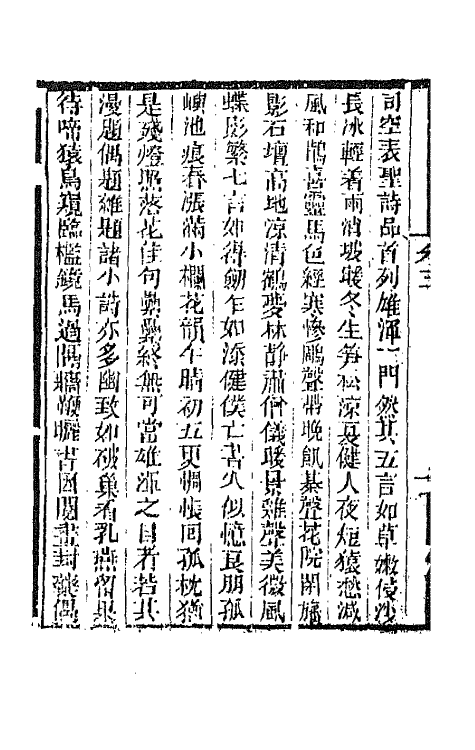 司空表聖詩品首列雄渾一門然其五言如草嫩侵沙
長冰輕着雨消坡暖冬生笋松涼夏健人夜短猿悲減
風和鵲喜靈馬色經寒慘鵰聲帶晚飢棊聲花院閉旛
影石壇高地涼清鶴夢林静肅僧儀暖景雞聲美微風
蝶影繁七言如得劒乍如添健僕亡書久似憶良朋孤
嶼池痕春漲滿小欄花韻午晴初五更惆悵囘孤枕猶
是殘燈照落花佳句纍纍終無可當雄渾之目者若其
漫題偶題雜題諸小詩亦多幽致如破巢看乳燕留果
待啼猿鳥窺臨檻鏡馬過隔牆鞭曬書因閲畫封藥偶
卷三